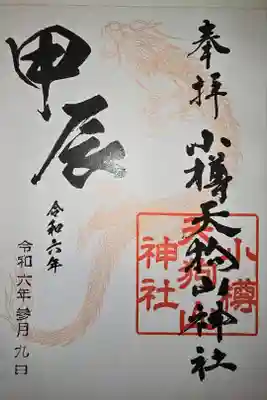 奉拝
小樽天狗山神社
小樽
天狗山
神社
甲辰
令和六年
令和六年参月九日